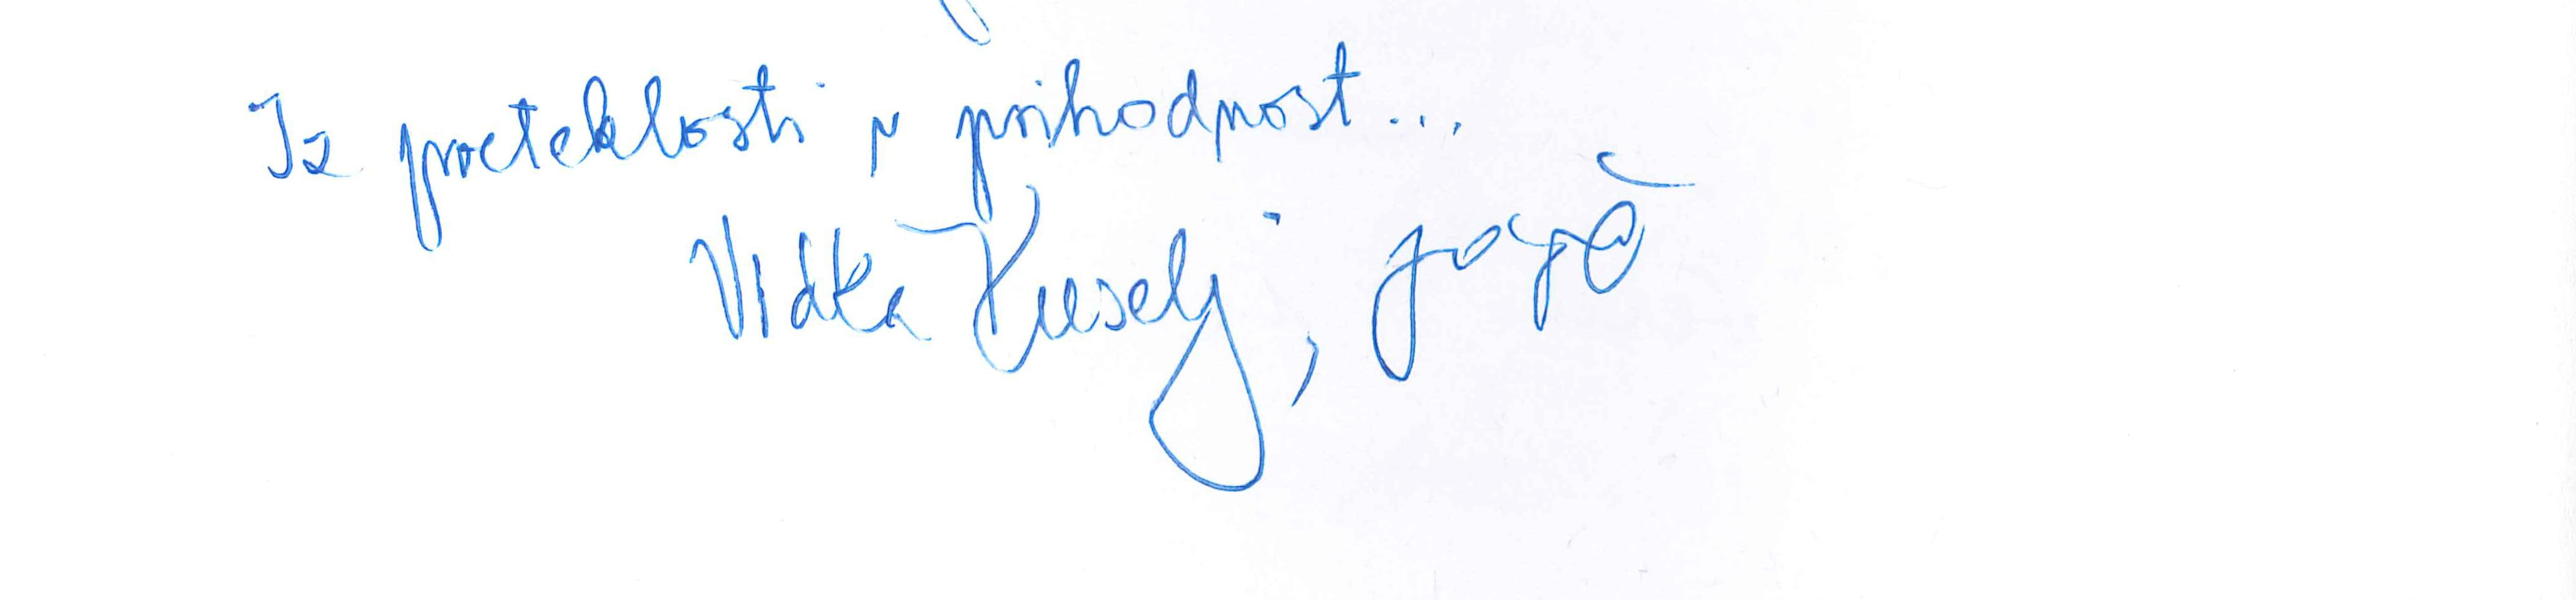 Iz preteklosti v prihodnost...
Vidka Kuselj,